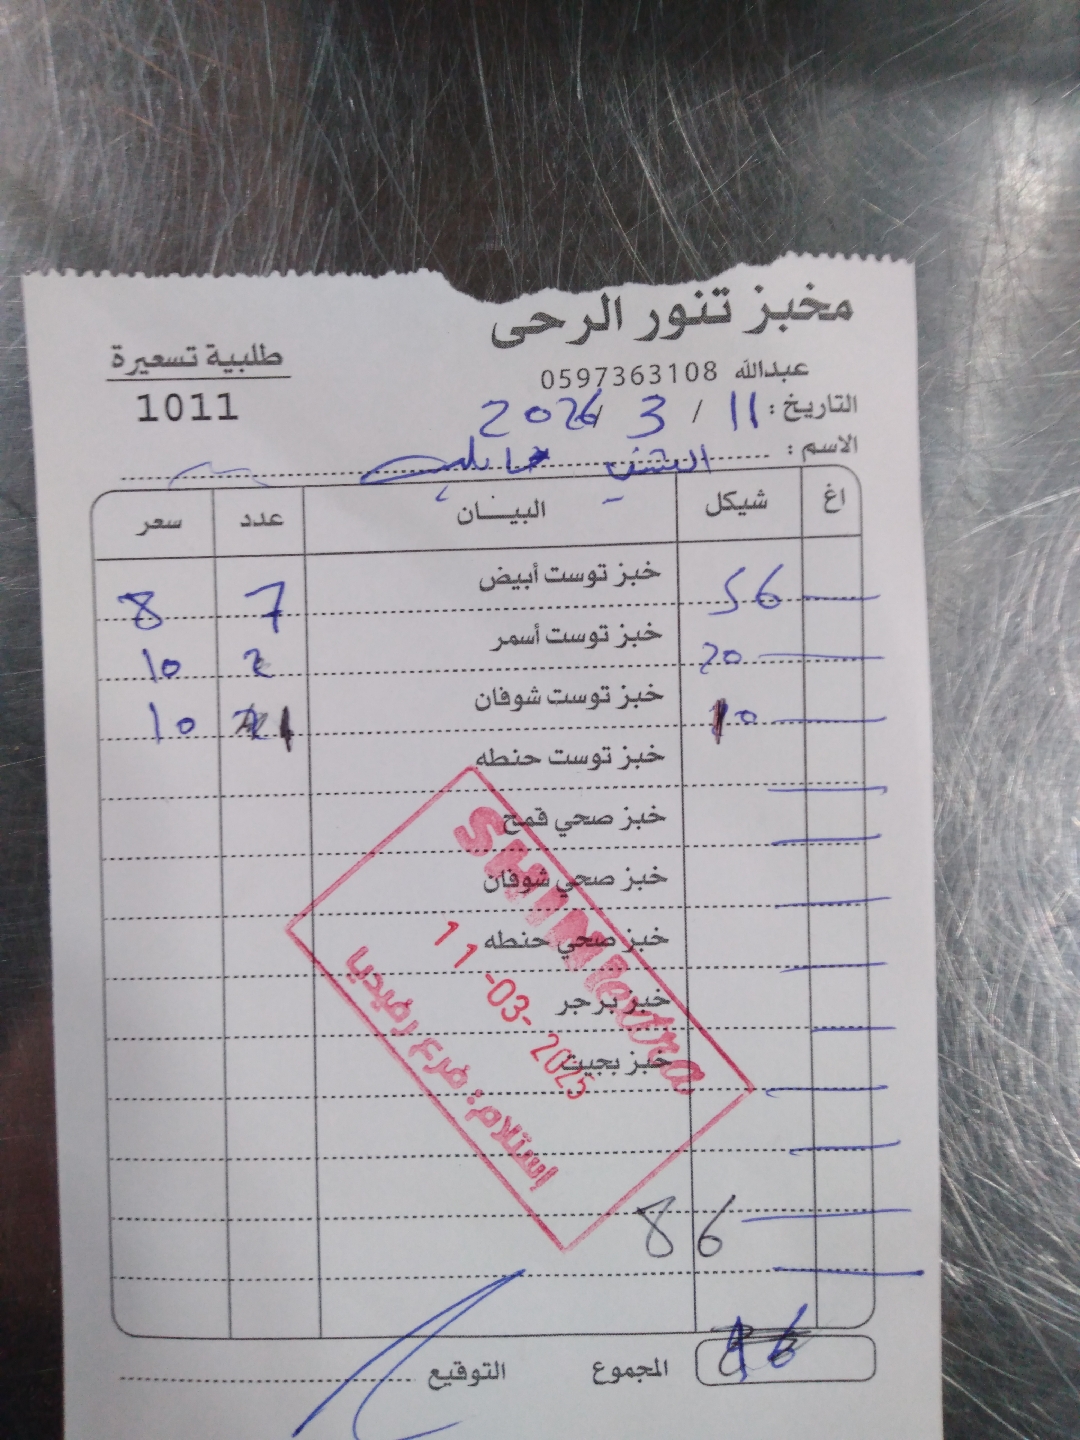 مخبز تنور الرحى
طلبية تسعيرة
عبدالله 0597363108
1011
التاريخ: 11 / 3 / 2026
الاسم:
اغ شيكل البيـــان عدد سعر
56 خبز توست أبيض 7 8
20 خبز توست أسمر 2 10
10 خبز توست شوفان 1 10
خبز توست حنطه
خبز صحي قمح
خبز صحي شوفان
خبز صحي حنطه
خبز برجر
خبز بجيت
SHINI extra
11 -03- 2025
إستلام: فرع رفيديا
86
المجموع
التوقيع